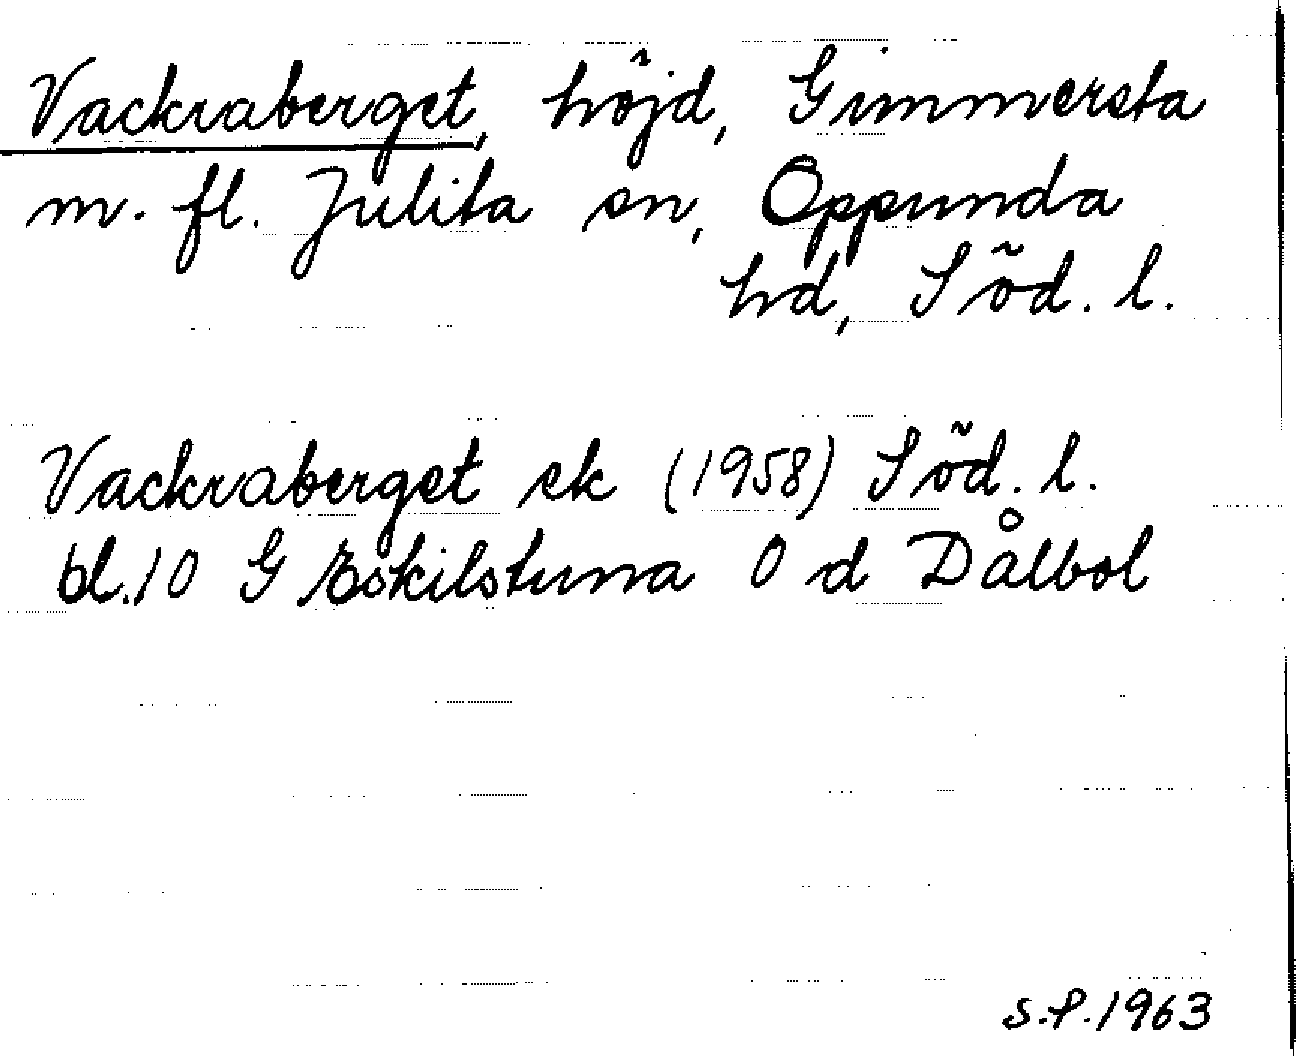 Vackraberget, höjd, Gimmersta
m. fl. Julita sn, Oppunda
hd, Söd. l.
Vackraberget ek (1958) Söd. l.
bl. 10 G Eskilstuna 0 d Dålbol
S.P. 1963